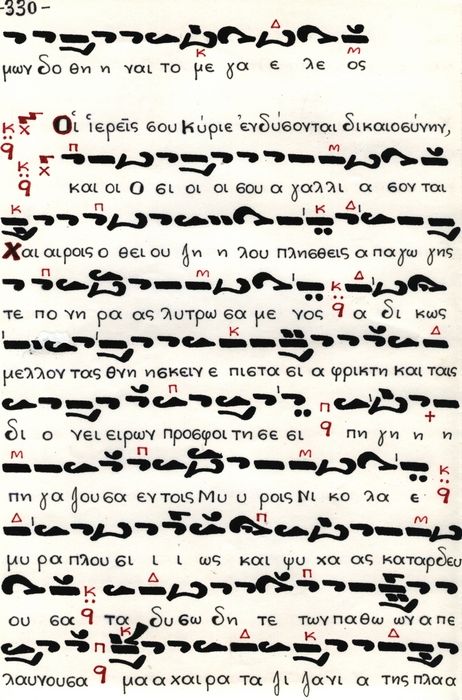 -330-
μων δο θη η ναι το με γα ε λε ος
Οἱ ἱερεῖς σου Κύριε ἐνδύσονται δικαιοσύνην,
και οι Ο σι οι οι σου α γαλλι α σον ται
Χαι αιροις ο θει ου ζη η λου πλησθεις α παγω γης
τε πο νη ρα ας λυτρω σα με νος α δι κως
μελλον τας θνη ησκειν ε πιστα σι α φρικτη και ταις
δι ο νει ειρων προσφοι τη σε σι πη γη η η
πη γα ζου σα εν τοις Μυ υ ροις Νι κο λα ε
μυ ρα πλου σι ι ι ως και ψυ χα ας καταρδευ
ου σα τα δυσω δη τε των παθω ων α πε
λαυνουσα μα α χαιρα τα ζι ζανι α της πλα α